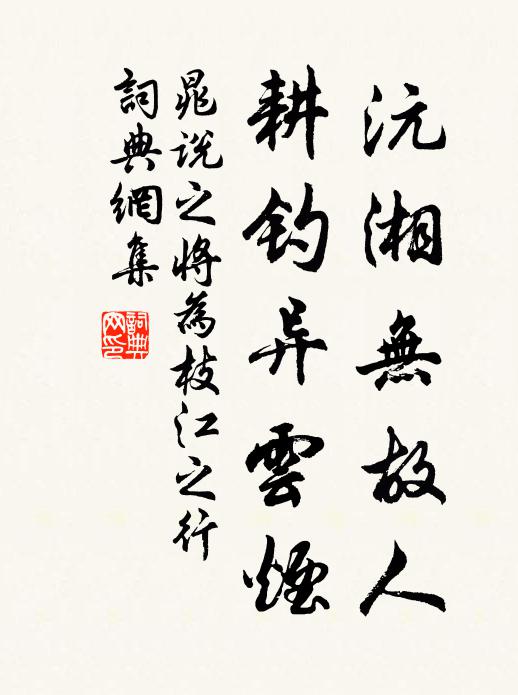 沅湘無故人
耕钓异雲煙
晁说之将為枝江之行
詞典網集
詞典
网印